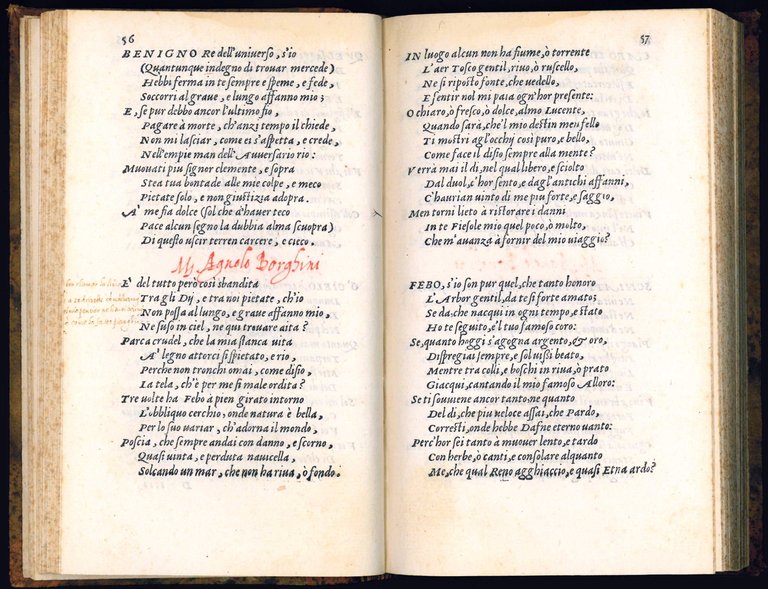 56
BENIGNO Re dell'universo, s'io
(Quantunque indegno di trovar mercede)
Hebbi ferma in te sempre e speme, e fede,
Soccorri al grave, e lungo affanno mio;
E, se pur debbo ancor l'ultimo fio,
Pagare à morte, ch'anzi tempo il chiede,
Non mi lasciar, come ei s'aspetta, e crede,
Nell'empie man dell'Avversario rio:
Muovati piu signor clemente, e sopra
Stea tua bontade alle mie colpe, e meco
Pietate solo, e non giustizia adopra.
A' me fia dolce (sol che d'haver teco
Pace alcun segno la dubbia alma scuopra)
Di questo uscir terren carcere, e cieco.
Mr Agnolo Borghini
E' del tutto però così sbandita
Tra gli Dij, e tra noi pietate, ch'io
Non possa al lungo, e grave affanno mio,
Ne suso in ciel, ne quì trovare aita?
Parca crudel, che la mia stanca vita
A' legno attorci sì spietato, e rio,
Perche non tronchi omai, come disio,
La tela, ch'è per me sì male ordita?
Tre volte ha Febo à pien girato intorno
L'obbliquo cerchio, onde natura è bella,
Per lo suo variar, ch'adorna il mondo,
Poscia, che sempre andai con danno, e scorno,
Quasi vinta, e perduta navicella,
Solcando un mar, che non ha riva, ò fondo.
57
IN luogo alcun non ha fiume, ò torrente
L'aer Tosco gentil, rivo, ò ruscello,
Ne sì riposto fonte, che vedello,
E sentir nol mi paia ogn'hor presente:
O chiaro, ò fresco, ò dolce, almo Lucente,
Quando sarà, che'l mio destin men fello
Ti mostri agl'occhij così puro, e bello,
Come face il disio sempre alla mente?
Verrà mai il dì, nel qual libero, e sciolto
Dal duol, c'hor sento, e dagl'antichi affanni,
C'haurian vinto di me piu forte, e saggio,
Men torni lieto à ristorare i danni
In te Fiesole mio quel poco, ò molto,
Che m'avanza à fornir del mio viaggio?
FEBO, s'io son pur quel, che tanto honoro
L'Arbor gentil, da te sì forte amato;
Se da che nacqui in ogni tempo, e stato
Ho te seguito, e'l tuo famoso coro:
Se, quanto hoggi s'agogna argento, & oro,
Dispregiai sempre, e sol vissi beato,
Mentre tra colli, e boschi in riva, ò prato
Giacqui, cantando il mio famoso Alloro:
Se ti soviene ancor tanto, ne quanto
Del dì, che piu veloce assai, che Pardo,
Corresti, onde hebbe Dafne eterno vanto:
Perc'hor sei tanto à muover lento, e tardo
Con herbe, ò canti, e consolare alquanto
Me, che qual Reno agghiaccio, e quasi Etna ardo?